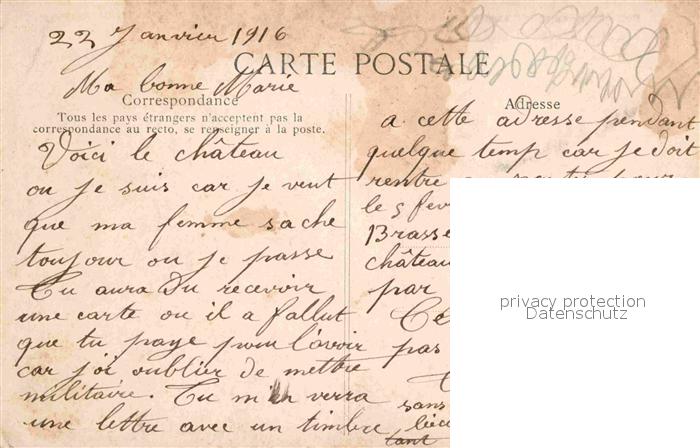 22 Janvier 1916
CARTE POSTALE
Ma bonne Marie
Correspondance
Tous les pays étrangers n'acceptent pas la
correspondance au recto, se renseigner à la poste.
Voici le château
ou je suis car je veut
que ma femme sache
toujour ou je passe
Tu aura du recevoir
une carte ou il a fallut
que tu paye pour l'avoir
car j'ai oublier de mettre
militaire. Tu m'en verra
une lettre avec un timbre
Adresse
a cette adresse pendant
quelque temp car je doit
rentre
le 5 fev
Brasse
château
par
Ce
pas
sans
tant
privacy protection
Datenschutz